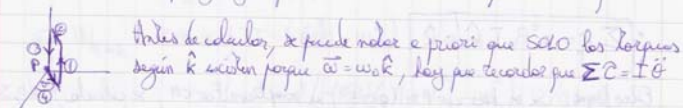 Antes de calcular, se puede notar a priori que SOLO los torques
según k̂ existen porque ω⃗ = ω₀k̂, hay que recordar que Στ = Iθ̈
O
P
①
②